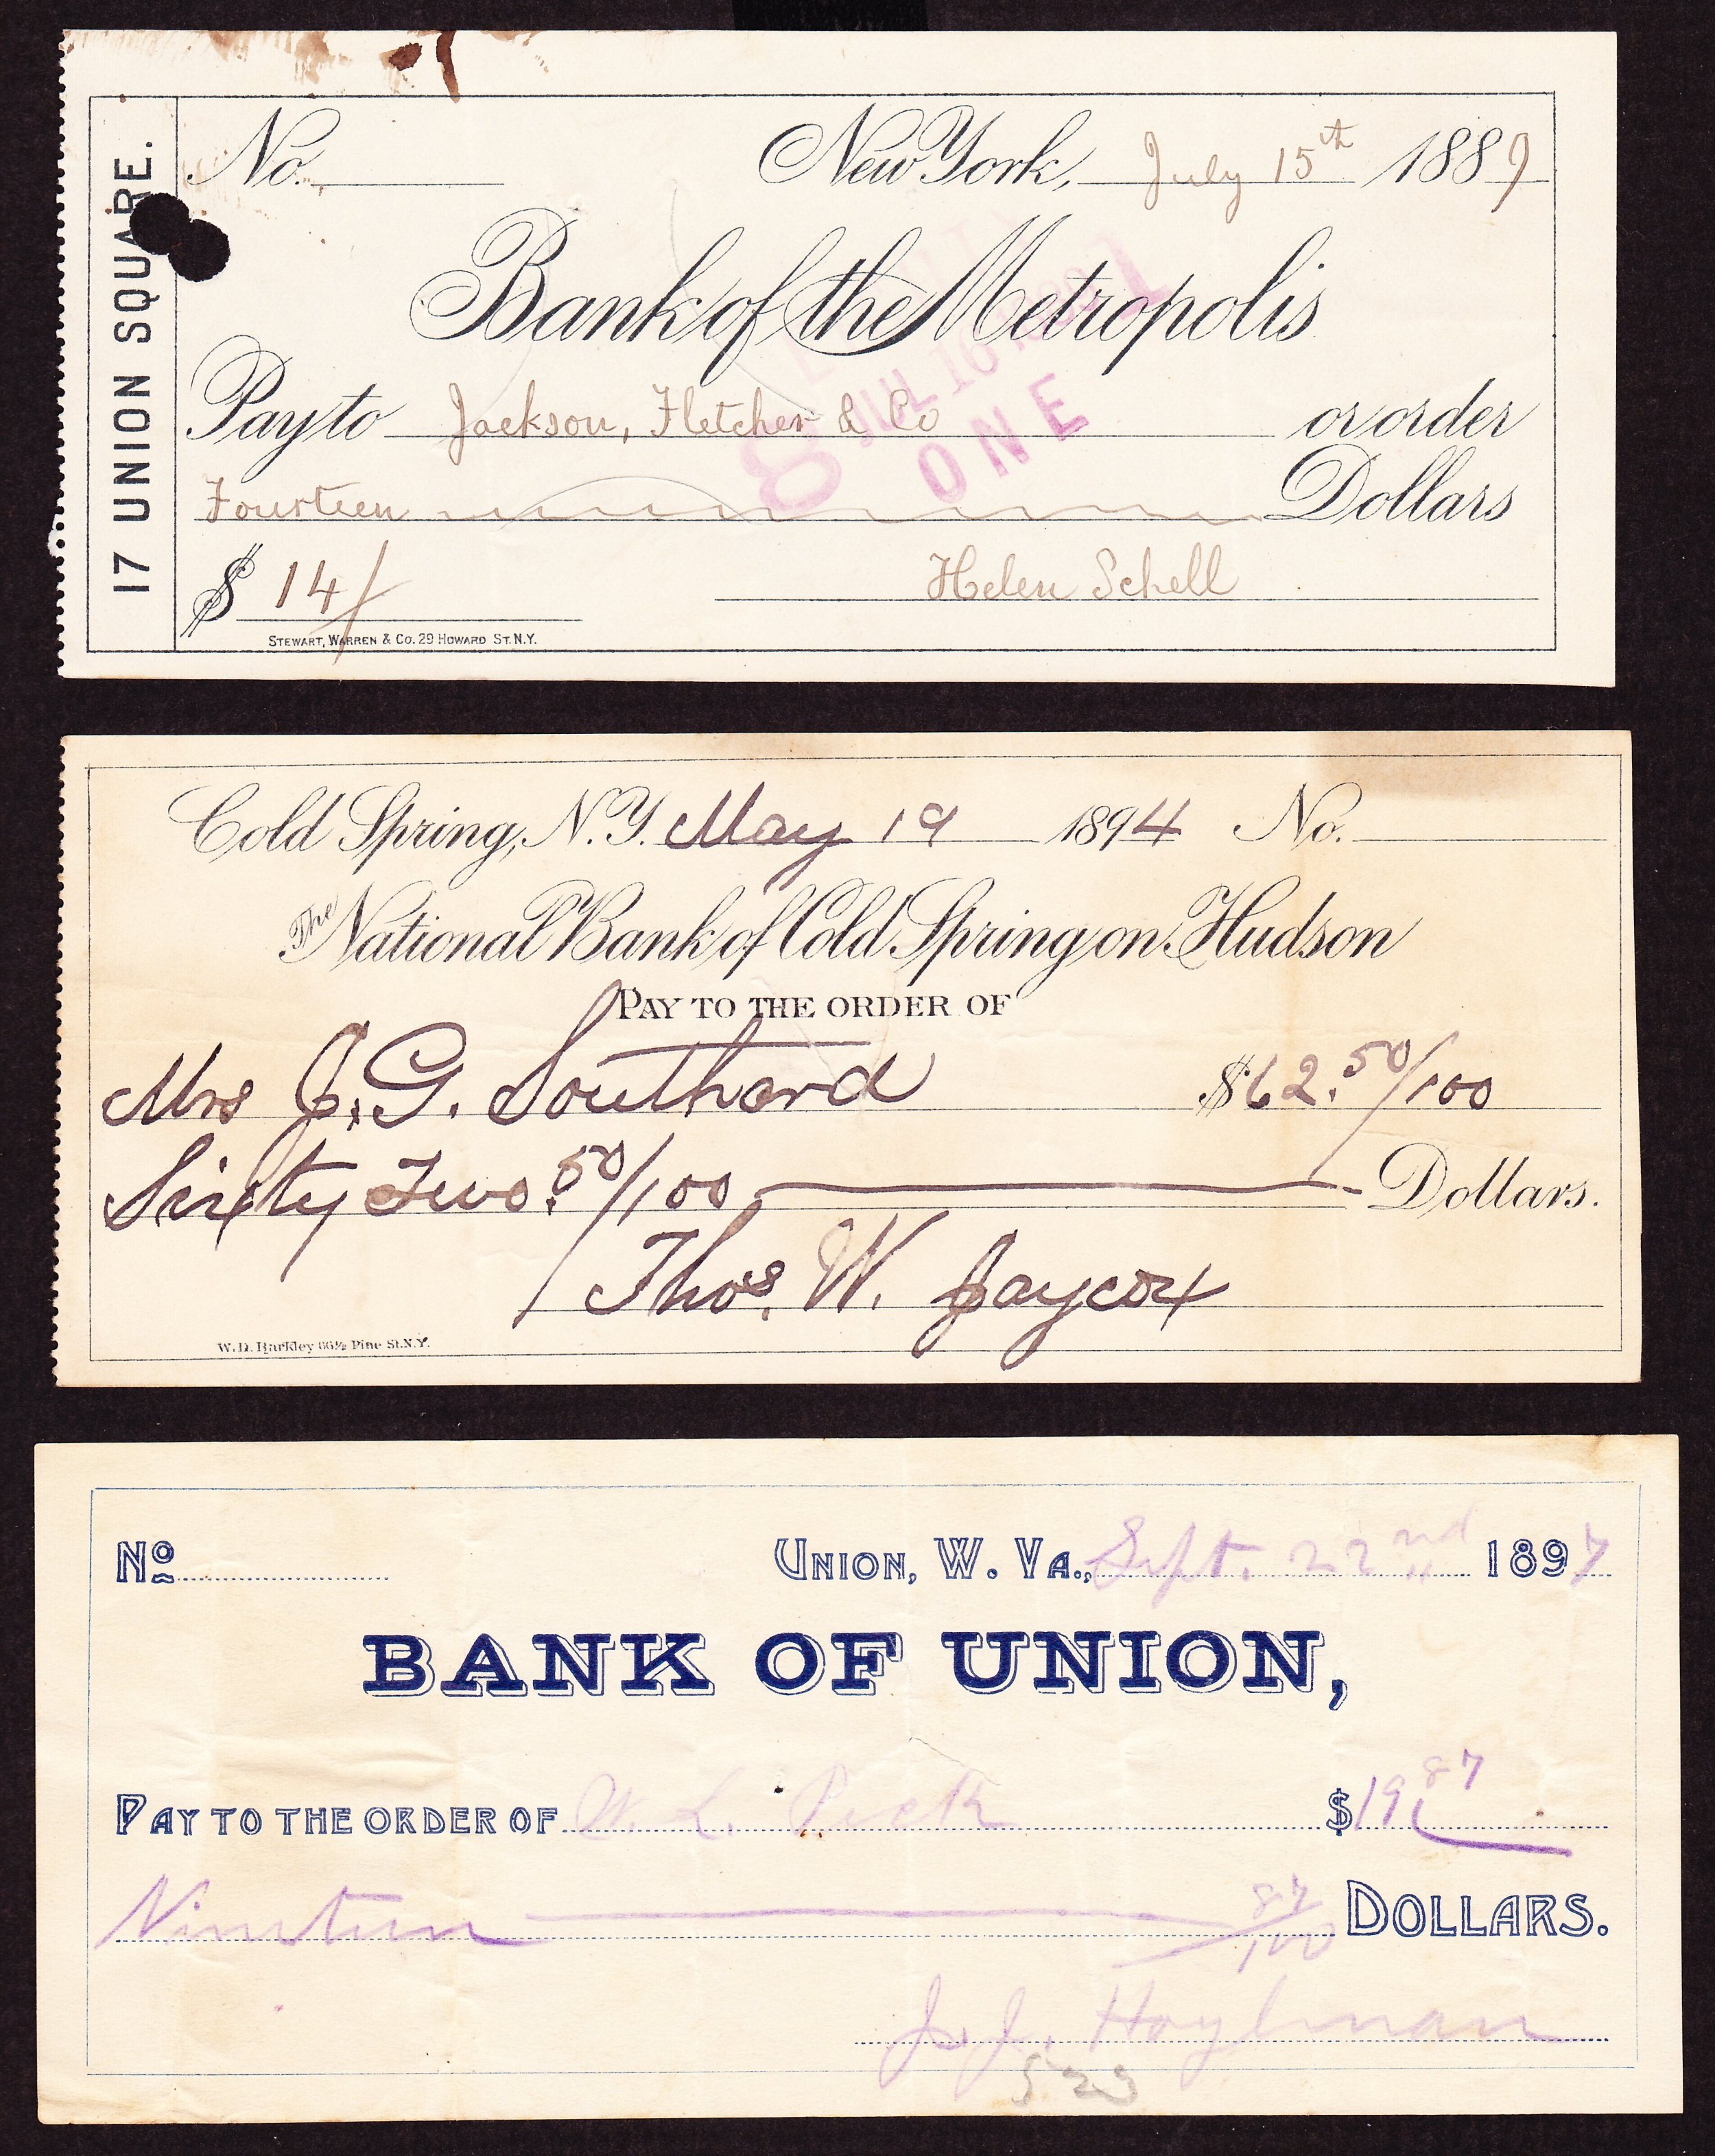 17 UNION SQUARE.
No. New York, July 15th 1889
Bank of the Metropolis
Pay to Jackson, Fletcher & Co or order
Fourteen Dollars
$ 14/ Helen Schell
STEWART, WARREN & CO. 29 HOWARD ST. N.Y.
JUL 16
ONE
Cold Spring, N.Y. May 19 1894 No.
The National Bank of Cold Spring on Hudson
PAY TO THE ORDER OF
Mrs J. G. Southard $62.50/100
Sixty Two. 50/100 Dollars.
Thos. W. Jaycox
W.D. Harkley 66½ Pine St. N.Y.
No UNION, W. VA., Sept. 22nd 1897
BANK OF UNION,
PAY TO THE ORDER OF W. L. Peck $19 87
Nineteen 87/100 DOLLARS.
J. J. Hoylman
523